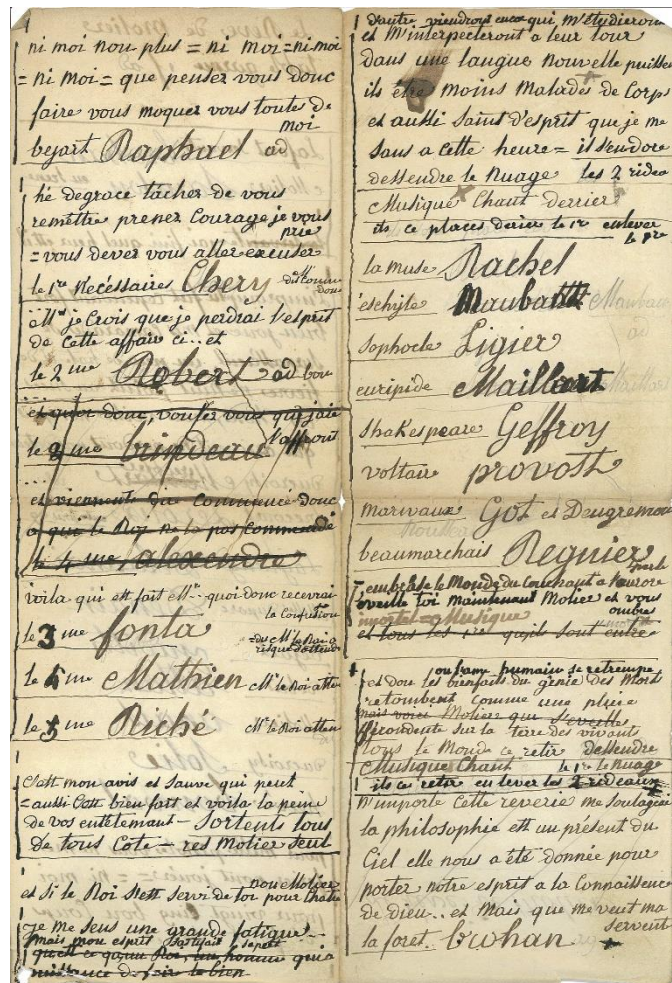 ni moi non plus = ni moi = ni moi
= ni moi = que pensez vous donc
faire vous moquer vous toutes de
moi
bejart Raphael ad
hé degrace tâcher de vous
remettre prenez Courage je vous
prie
= vous dever vous aller excuser
le 1re Necéssaires Chery
Mr je Crois que je perdrai l'esprit
de Cette affair ci... et
le 2 me Robert ad
et quoi donc, voulez vous que j'aie
le 3 me brindeau l'affront
et viennent du Commence donc
a qui le Roi ne la pas Commandé
le 4 me alexendre
voila qui est fait Mr quoi donc recevrai
la Confusion
le 3 me fonta
le 4 me Mathien Mr le Roi atten
le 5 me Riché Mr le Roi atten
C'est mon avis et Sauve qui peut
= aussi Cest bien fort et voila la peine
de vos entétement - Sortents tous
de tous Cote - res Molier Seul
et si le Roi s'est servi de toi pour
je me sens une grande fatigue
mais mon esprit Satisfait
qu'est ce qu'un Roi, un homme qui a
puissance de faire le bien
d'autre viendrons encor qui m'étudieron
et M'interpecteront a leur tour
dans une langue Nouvelle puisse
ils être moins Malades de Corps
et aussi Saint d'esprit que je me
sans a Cette heure = il s'endore
dessendre le Nuage les 2 ridea
Musique Chant derrier
ils ce places derier le 1re enlever
le 1re
la Muse Rachel
éschyle Maubant
Sophocle Ligier
euripide Maillart
Shakespeare Geffroy
voltaire provost
marivaux Got et Deugremon
beaumarchais Regnier
embrase le Monde du Couchant a l'aurore
éveille toi maintenant Molier et vous
ombre
immortel = Musique
et tous les 1re qu'ils sont entré
ou l'ame humain se retrempe
et dou les bienfaits du genie des Mort
retombent Comme une pluie
mais voici Molier qui s'eveille
fécondente sur la terre des vivant
tous le Monde ce retir dessendre
Musique Chant le 1re le Nuage
ils ce retir enlever les 2 rideaux
N'importe Cette reverie me Soulagé
la philosophie est un présent du
Ciel elle nous a été donnée pour
porter notre esprit a la Connaissence
de Dieu.. et Mais que me veut ma
servent
la foret.. brohan